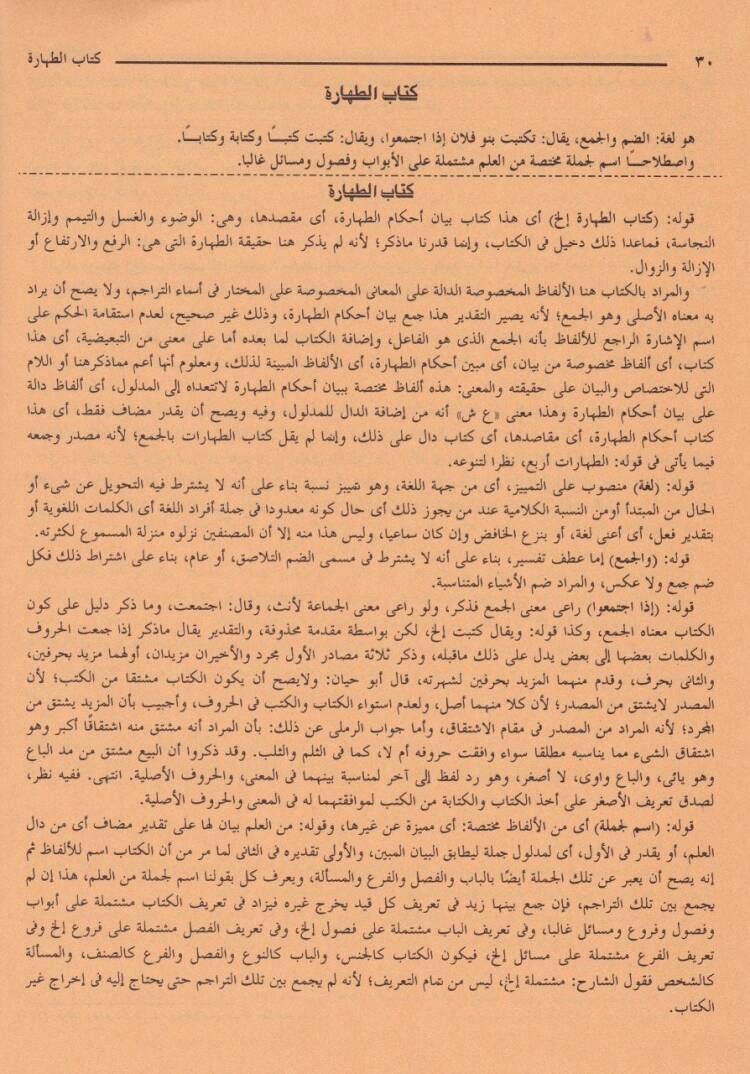 ٣٠ كتاب الطهارة
كتاب الطهارة
هو لغة: الضم والجمع، يقال: تكتبت بنو فلان إذا اجتمعوا، ويقال: كتبت كتبـًا وكتابة وكتابـًا.
واصطلاحـًا اسم لجملة مختصة من العلم مشتملة على الأبواب وفصول ومسائل غالبا.
كتاب الطهارة
قوله: (كتاب الطهارة إلخ) أى هذا كتاب بيان أحكام الطهارة، أى مقصدها، وهى: الوضوء والغسل والتيمم وإزالة
النجاسة، فماعدا ذلك دخيل فى الكتاب، وإنما قدرنا ماذكر؛ لأنه لم يذكر هنا حقيقة الطهارة التى هى: الرفع والارتفاع أو
الإزالة والزوال.
والمراد بالكتاب هنا الألفاظ المخصوصة الدالة على المعانى المخصوصة على المختار فى أسماء التراجم، ولا يصح أن يراد
به معناه الأصلى وهو الجمع؛ لأنه يصير التقدير هذا جمع بيان أحكام الطهارة، وذلك غير صحيح، لعدم استقامة الحكم على
اسم الإشارة الراجع للألفاظ بأنه الجمع الذى هو الفاعل، وإضافة الكتاب لما بعده أما على معنى من التبعيضية، أى هذا
كتاب، أى ألفاظ مخصوصة من بيان، أى مبين أحكام الطهارة، أى الألفاظ المبينة لذلك، ومعلوم أنها أعم مماذكرهنا أو اللام
التى للاختصاص والبيان على حقيقته والمعنى: هذه ألفاظ مختصة ببيان أحكام الطهارة لاتتعداه إلى المدلول، أى ألفاظ دالة
على بيان أحكام الطهارة وهذا معنى «ع ش» أنه من إضافة الدال للمدلول، وفيه ويصح أن يقدر مضاف فقط، أى هذا
كتاب أحكام الطهارة، أى مقاصدها، أى كتاب دال على ذلك، وإنما لم يقل كتاب الطهارات بالجمع؛ لأنه مصدر وجمعه
فيما يأتى فى قوله: الطهارات أربع، نظرا لتنوعه.
قوله: (لغة) منصوب على التمييز، أى من جهة اللغة، وهو تمييز نسبة بناء على أنه لا يشترط فيه التحويل عن شىء أو
الحال من المبتدأ أومن النسبة الكلامية عند من يجوز ذلك أى حال كونه معدودا فى جملة أفراد اللغة أى الكلمات اللغوية أو
بتقدير فعل، أى أعنى لغة، أو بنزع الخافض وإن كان سماعيا، وليس هذا منه إلا أن المصنفين نزلوه منزلة المسموع لكثرته.
قوله: (والجمع) إما عطف تفسير، بناء على أنه لا يشترط فى مسمى الضم التلاصق، أو عام، بناء على اشتراط ذلك فكل
ضم جمع ولا عكس، والمراد ضم الأشياء المتناسبة.
قوله: (إذا اجتمعوا) راعى معنى الجمع فذكر، ولو راعى معنى الجماعة لأنث، وقال: اجتمعت، وما ذكر دليل على كون
الكتاب معناه الجمع، وكذا قوله: ويقال كتبت إلخ، لكن بواسطة مقدمة محذوفة، والتقدير يقال ماذكر إذا جمعت الحروف
والكلمات بعضها إلى بعض يدل على ذلك ماقبله، وذكر ثلاثة مصادر الأول مجرد والأخيران مزيدان، أولهما مزيد بحرفين،
والثانى بحرف، وقدم منهما المزيد بحرفين لشهرته، قال أبو حيان: ولايصح أن يكون الكتاب مشتقا من الكتب؛ لأن
المصدر لايشتق من المصدر؛ لأن كلا منهما أصل، ولعدم استواء الكتاب والكتب فى الحروف، وأجيب بأن المزيد يشتق من
المجرد؛ لأنه المراد من المصدر فى مقام الاشتقاق، وأما جواب الرملى عن ذلك: بأن المراد أنه مشتق منه اشتقاقًا أكبر وهو
اشتقاق الشىء مما يناسبه مطلقا سواء وافقت حروفه أم لا، كما فى الثلم والثلب. وقد ذكروا أن البيع مشتق من مد الباع
وهو يائى، والباع واوى، لا أصغر، وهو رد لفظ إلى آخر لمناسبة بينهما فى المعنى، والحروف الأصلية. انتهى. ففيه نظر،
لصدق تعريف الأصغر على أخذ الكتاب والكتابة من الكتب لموافقتهما له فى المعنى والحروف الأصلية.
قوله: (اسم لجملة) أى من الألفاظ مختصة: أى مميزة عن غيرها، وقوله: من العلم بيان لها على تقدير مضاف أى من دال
العلم، أو يقدر فى الأول، أى لمدلول جملة ليطابق البيان المبين، والأولى تقديره فى الثانى لما مر من أن الكتاب اسم للألفاظ ثم
إنه يصح أن يعبر عن تلك الجملة أيضًا بالباب والفصل والفرع والمسألة، ويعرف كل بقولنا اسم لجملة من العلم، هذا إن لم
يجمع بين تلك التراجم، فإن جمع بينها زيد فى تعريف كل قيد يخرج غيره فيزاد فى تعريف الكتاب مشتملة على أبواب
وفصول وفروع ومسائل غالبا، وفى تعريف الباب مشتملة على فصول إلخ، وفى تعريف الفصل مشتملة على فروع إلخ وفى
تعريف الفرع مشتملة على مسائل إلخ، فيكون الكتاب كالجنس، والباب كالنوع والفصل والفرع كالصنف، والمسألة
كالشخص فقول الشارح: مشتملة إلخ، ليس من تمام التعريف؛ لأنه لم يجمع بين تلك التراجم حتى يحتاج إليه فى إخراج غير
الكتاب.